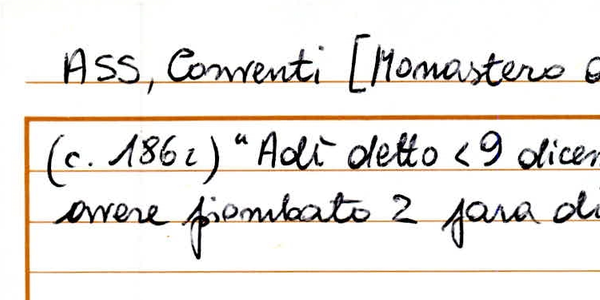 ASS, Conventi [Monastero
(c. 186r) "Adì detto <9 dicem
avere piombato 2 para di